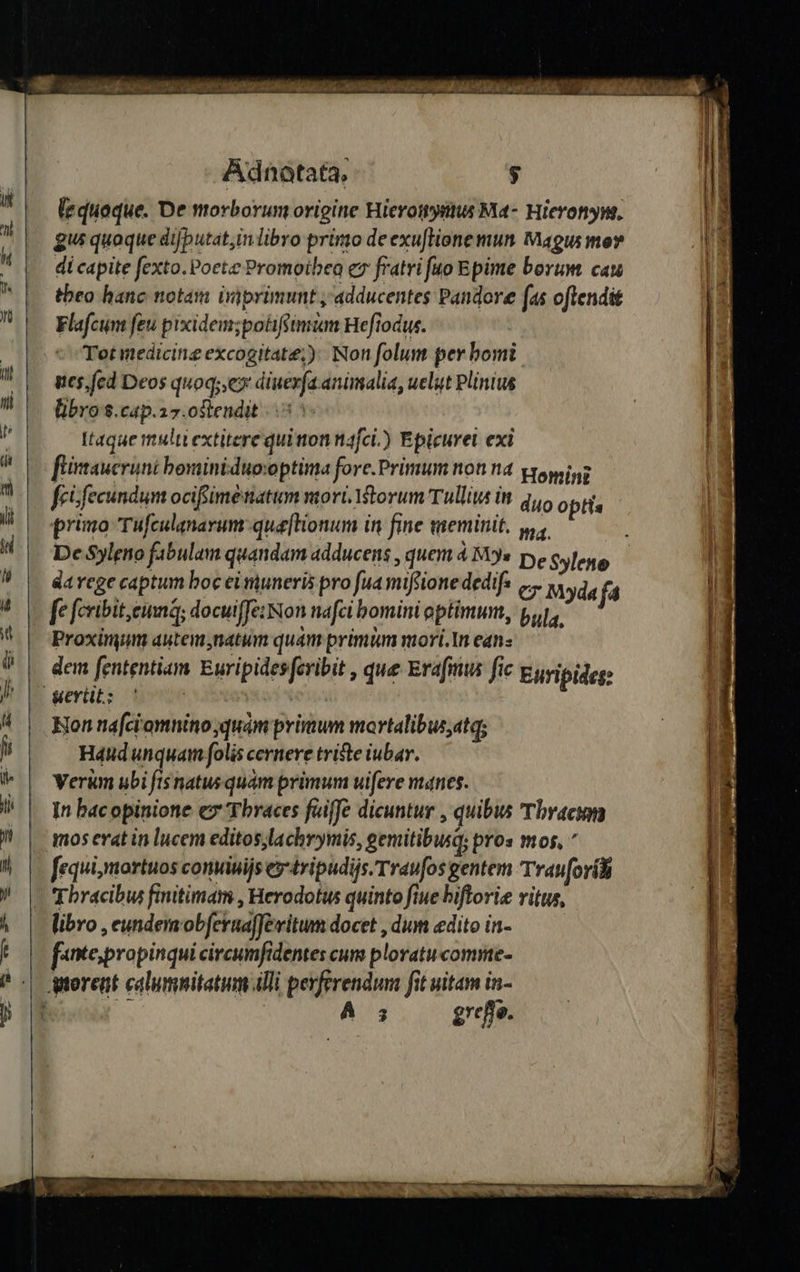 Adnotata. 5
lequoque. De morborum origine Hieronymus Ma- Hieronym.
gus quoque disputat, in libro primo de exustione mun Magus mor
di capite sexto. Poetæ Prometheo et fratri suo Epime borum cau
theo hanc notam imprimunt, adducentes Pandoræ fas ostendit
Flascum seu pixidem; potissimùm Hesiodus.
Tot medicinæ excogitatæ;) Non solum per homi
nes, sed Deos quoq;, et diuersa animalia, uelut Plinius
libro 8. cap. 27. ostendit
Itaque multi extitere qui non nasci.) Epicurei exi
stimauerunt homini duo optima fore. Primum non na Homini
sci, secundum ocißimè natum mori. Istorum Tullius in duo optia
primo Tusculanarum quæstionum in fine meminit. ma.
De Syleno fabulam quandam adducens, quem à My= De Syleno
da rege captum hoc ei muneris pro sua mißione dedis= et Myda fa
se scribit, eumq́; docuisse: Non nasci homini optimum, bula.
Proximum autem, natum quàm primùm mori. In ean=
dem sententiam Euripides scribit, quæ Erasmus sic Euripides:
uertit:
Non nasci omnino, quàm primum mortalibus, atq;
Haud unquam solis cernere triste iubar.
Verùm ubi sis natus quàm primum uisere manes.
In hac opinione et Thraces fuisse dicuntur, quibus Thracum
mos erat in lucem editos, lachrymis, gemitibusq́; pro= mos,
sequi, mortuos conuiuijs et tripudijs. Trausos gentem Trausorum
Thracibus finitimam, Herodotus quinto siue historiæ ritus,
libro, eundem obseruasse ritum docet, dum ædito in-
fante, propinqui circumsidentes cum ploratu comme-
morent calumnitatum illi perferrendum sit uitam in-
A 3 gresso.